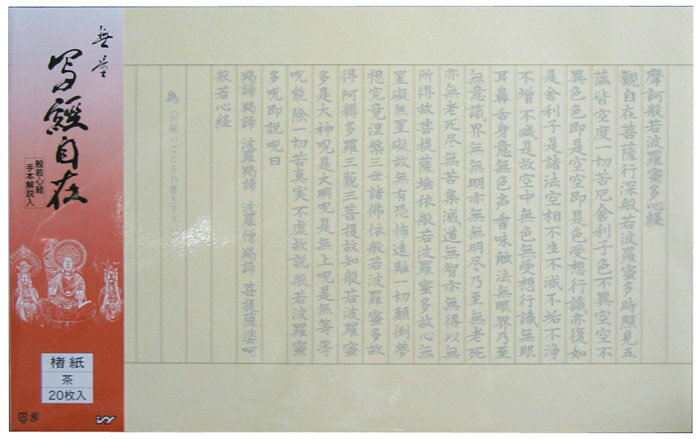 無量
写經自在
般若心経
手本解説入
楮紙
茶
20枚入
摩訶般若波羅蜜多心経
觀自在菩薩行深般若波羅蜜多時照見五
蘊皆空度一切苦厄舎利子色不異空空不
異色色即是空空即是色受想行識亦復如
是舎利子是諸法空相不生不滅不垢不浄
不増不減是故空中無色無受想行識無眼
耳鼻舌身意無色声香味触法無眼界乃至
無意識界無無明亦無無明尽乃至無老死
亦無老死尽無苦集滅道無智亦無得以無
所得故菩提薩埵依般若波羅蜜多故心無
罣礙無罣礙故無有恐怖遠離一切顛倒夢
想究竟涅槃三世諸佛依般若波羅蜜多故
得阿耨多羅三藐三菩提故知般若波羅蜜
多是大神呪是大明呪是無上呪是無等等
呪能除一切苦真実不虚故説般若波羅蜜
多呪即説呪曰
羯諦羯諦 波羅羯諦 波羅僧羯諦 菩提薩婆呵
般若心経
為(お願いごとをお書き下さい)